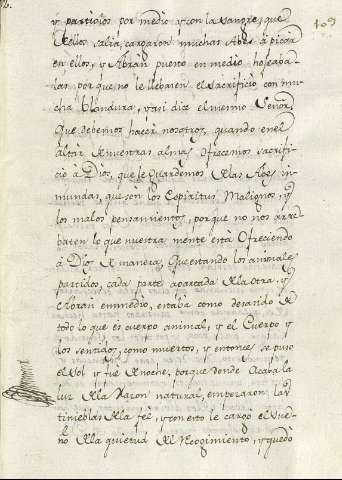 109
y partiolos por medio y con la sangre, que
dellos salia, cargaron muchas Abes à picar
en ellos, y Abran puesto en medio hojeaba-
las, porque no le llebaren el sacrificio con mu-
cha blandura, y asi dice el mismo Señor
Que debemos hacer nosotros, quando en el
altar de nuestras almas ofrecemos sacrifi-
cio à Dios, que le Guardemos de las Abes in-
mundas, que son los Espiritus Malignos y
los malos pensamientos, porque no nos arre-
baten lo que nuestra mente està ofreciendo
à Dios de manera, Que estando los animales
partidos, cada parte apartada de la otra, y
Abran enmedio, estaba como dejando de
todo lo que es cuerpo animal, y el Cuerpo y
los sentidos, como muertos, y entonces se puso
el Sol, y fue de noche, porque donde Acaba la
luz de la Razon natural, empezaron las
tinieblas de la fè, y con esto le cargò el sue-
ño de la quietud del Recogimiento, y quedò